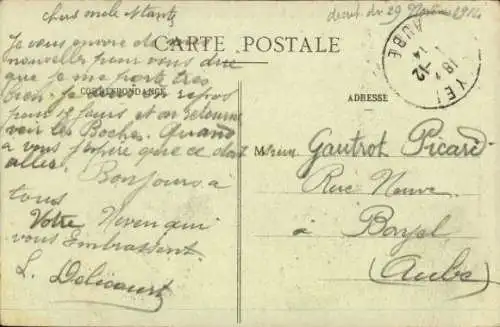 chers oncle et tante
decut. du 29 1914
CARTE POSTALE
Je vous envoie de
nouvelles pour vous dire
que je me porte tres
bien. Je suis au repos
CORRESPONDANCE
pour 12 jours et on retourne
voir les Boches. Quand
a vous j'espere que ce doit
aller. Bonjours a
tous
Votre Neveu qui
vous Embrassent
L. Delicourt
ADRESSE
AUBE
18
12
14
Gautrot Picard
Rue Neuve
a Bayel
(Aube)